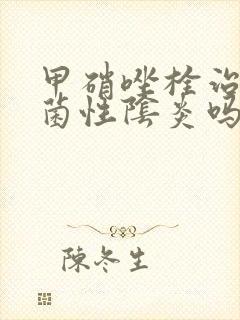 甲硝唑栓治
菌性陰炎吗
陳冬生